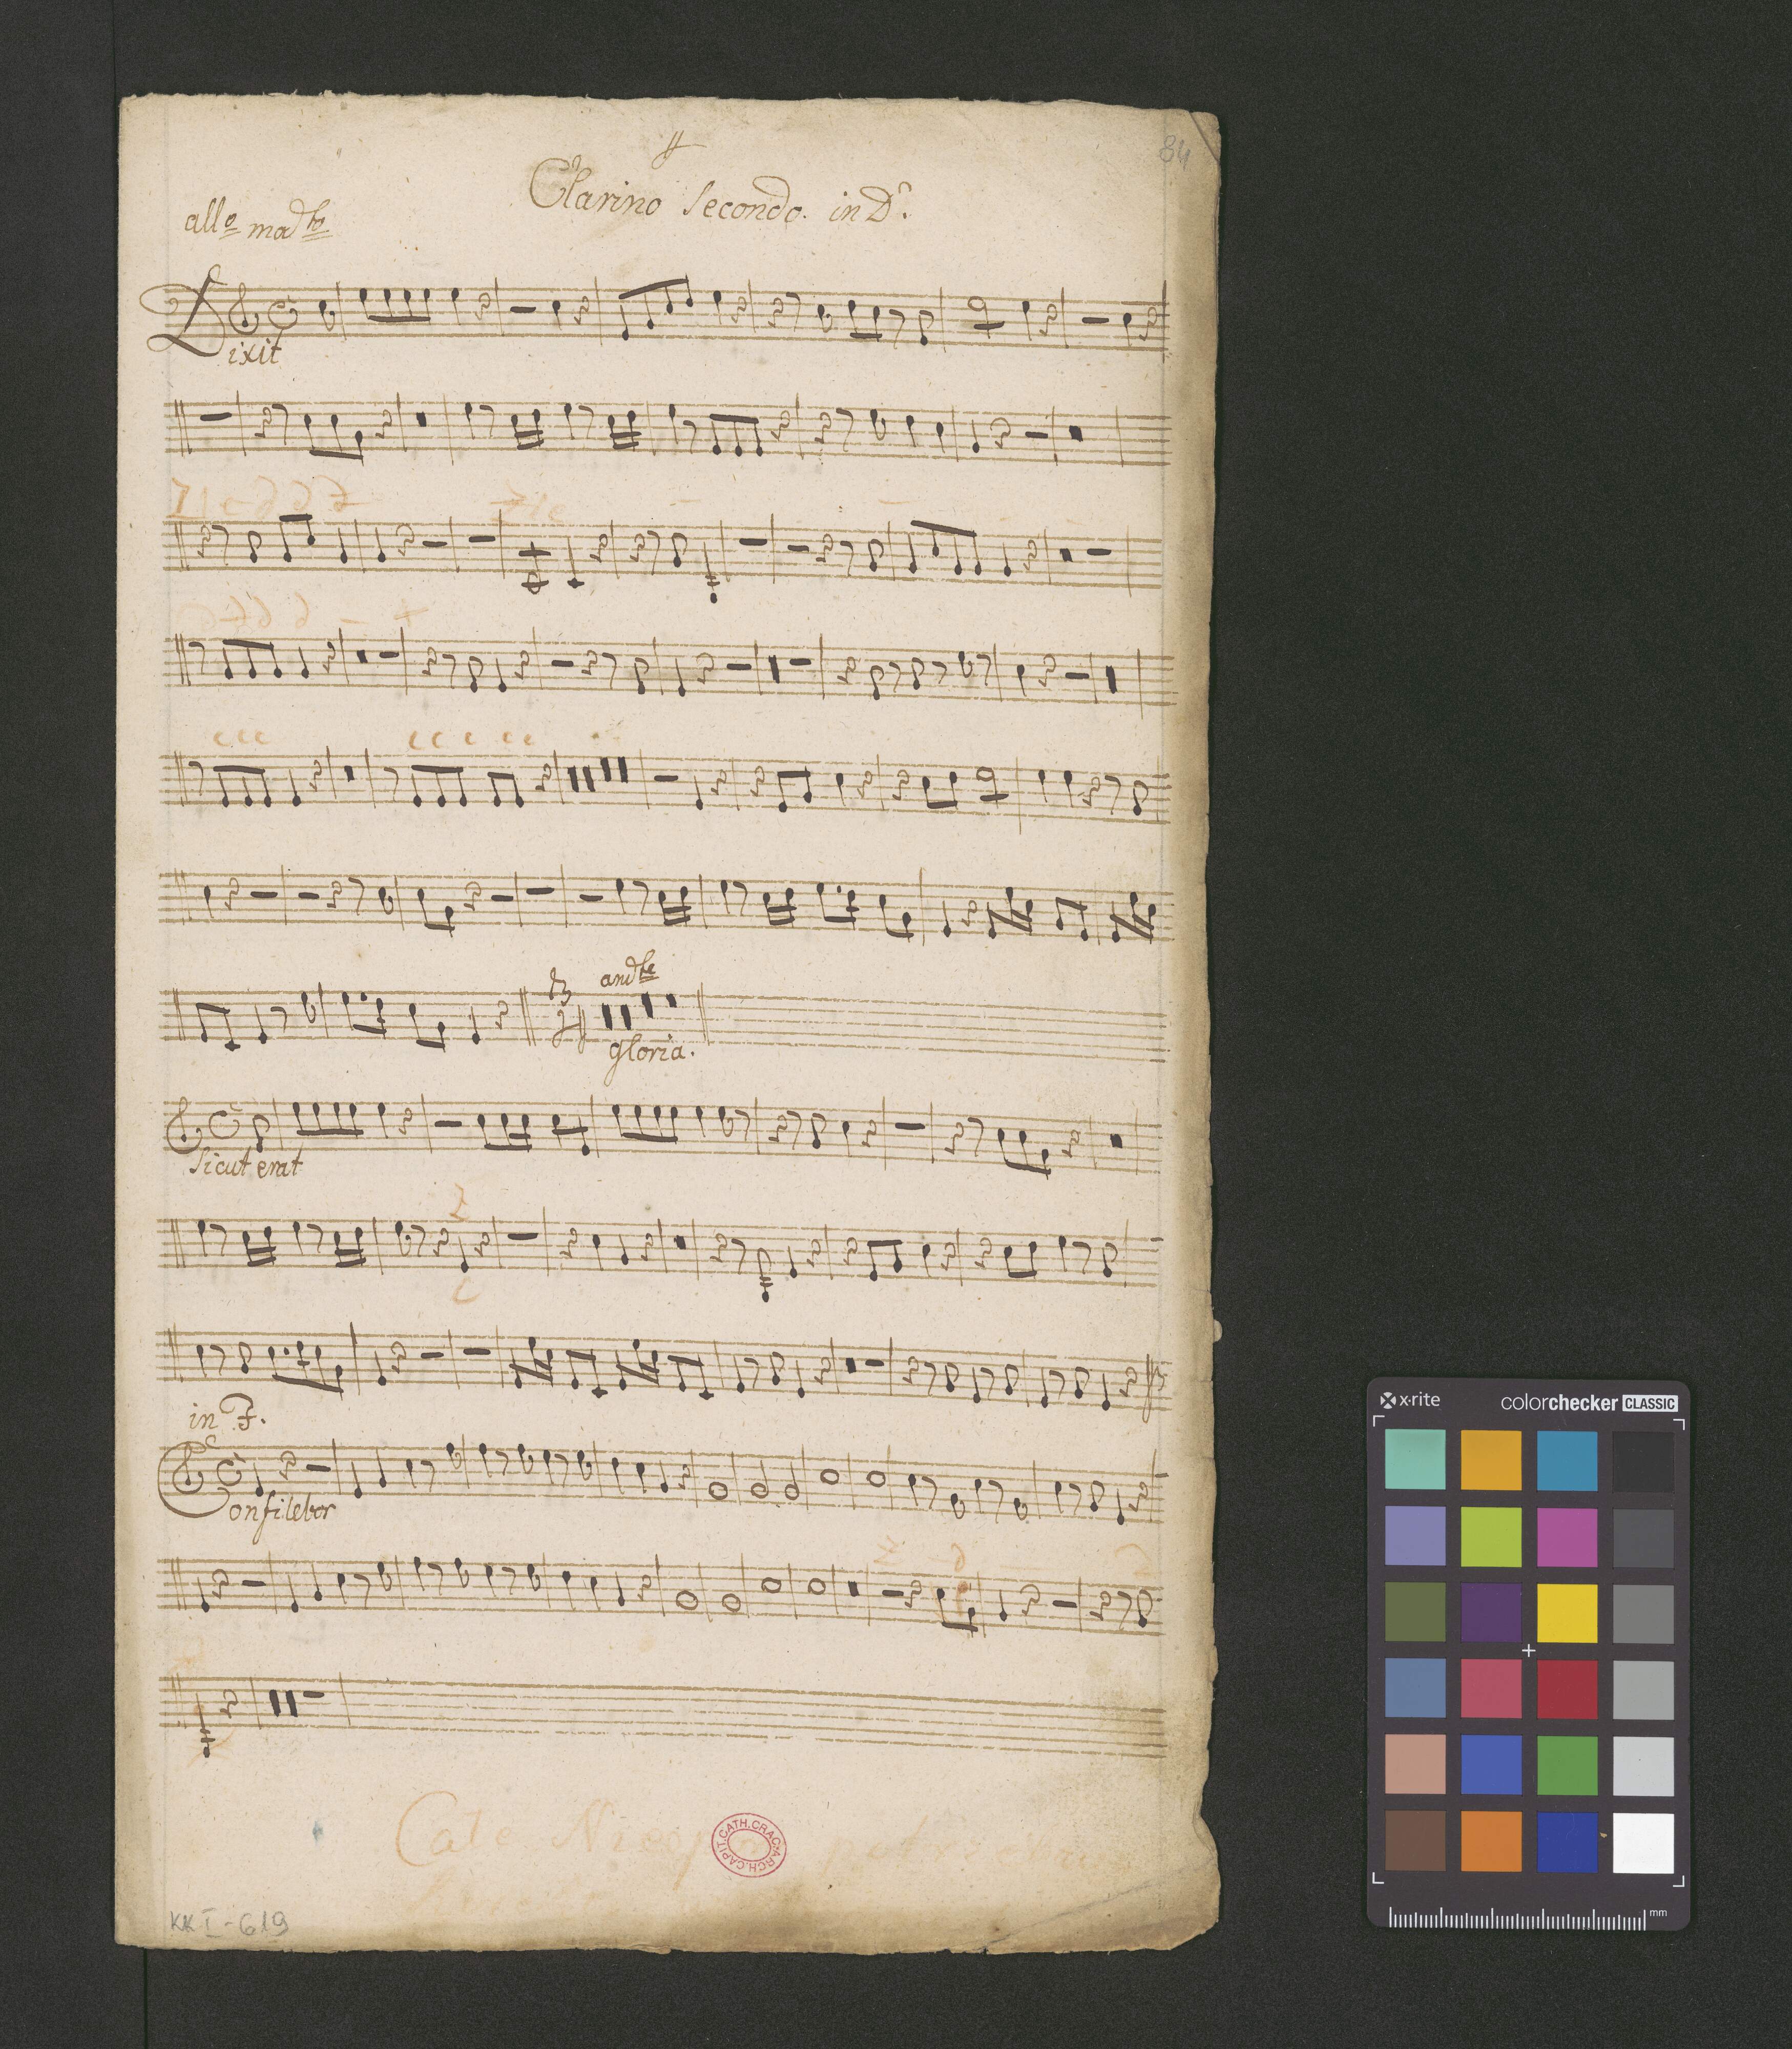 84
Clarino Secondo. in D.
all° mod to
Dixit
and te
gloria.
Sicut erat
in F.
Confitebor
Cale
ARCH. CAPIT. CATH. CRAC.
KK I - 619
x-rite
colorchecker CLASSIC
mm